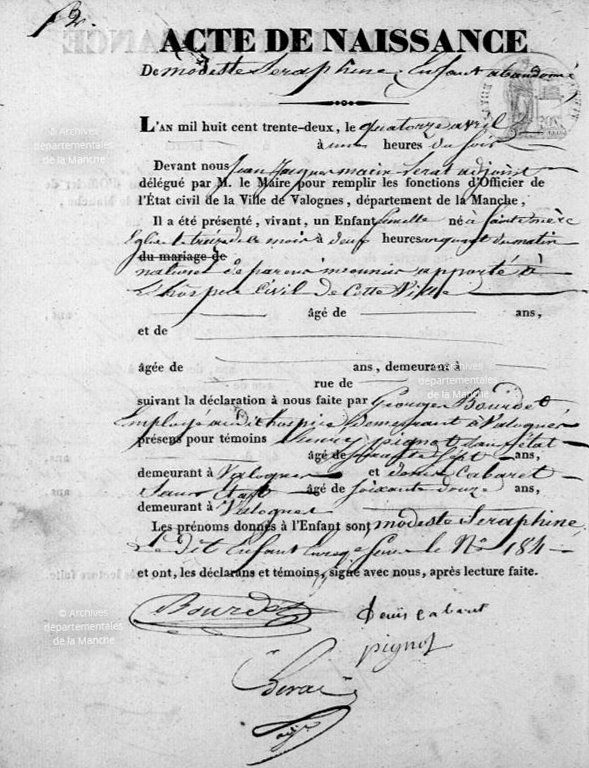 ACTE DE NAISSANCE
De modeste Seraphine, Enfant abandonné
L'AN mil huit cent trente-deux, le quatorze avril
à une heures du soir
Devant nous Jean Jacques
adjoint
délégué par M. le Maire pour remplir les fonctions d'Officier de
l'État civil de la Ville de Valognes, département de la Manche,
Il a été présenté, vivant, un Enfant femelle né à Sainte mère
Eglise le treize de ce mois à deux heures du matin
du mariage de
naturel de parens inconnus apporté à
L'hospice Civil de Cette Ville
âgé de ans,
et de
âgée de ans, demeurant à
rue de
suivant la déclaration à nous faite par Georges Bourdet
Employé audit hospice Demeurant à Valognes
présens pour témoins pignot sans état
âgé de soixante Sept ans,
demeurant à Valognes et denis Cabaret
Sans Etat âgé de Soixante douze ans,
demeurant à Valognes
Les prénoms donnés à l'Enfant sont modeste Seraphine
Le Dit Enfant Enregé Sous le No 184
et ont, les déclarans et témoins, signé avec nous, après lecture faite.
Bourdet
denis cabaret
pignot
© Archives
départementales
de la Manche
© Archives
départementales
de la Manche
© Archives
départementales
de la Manche